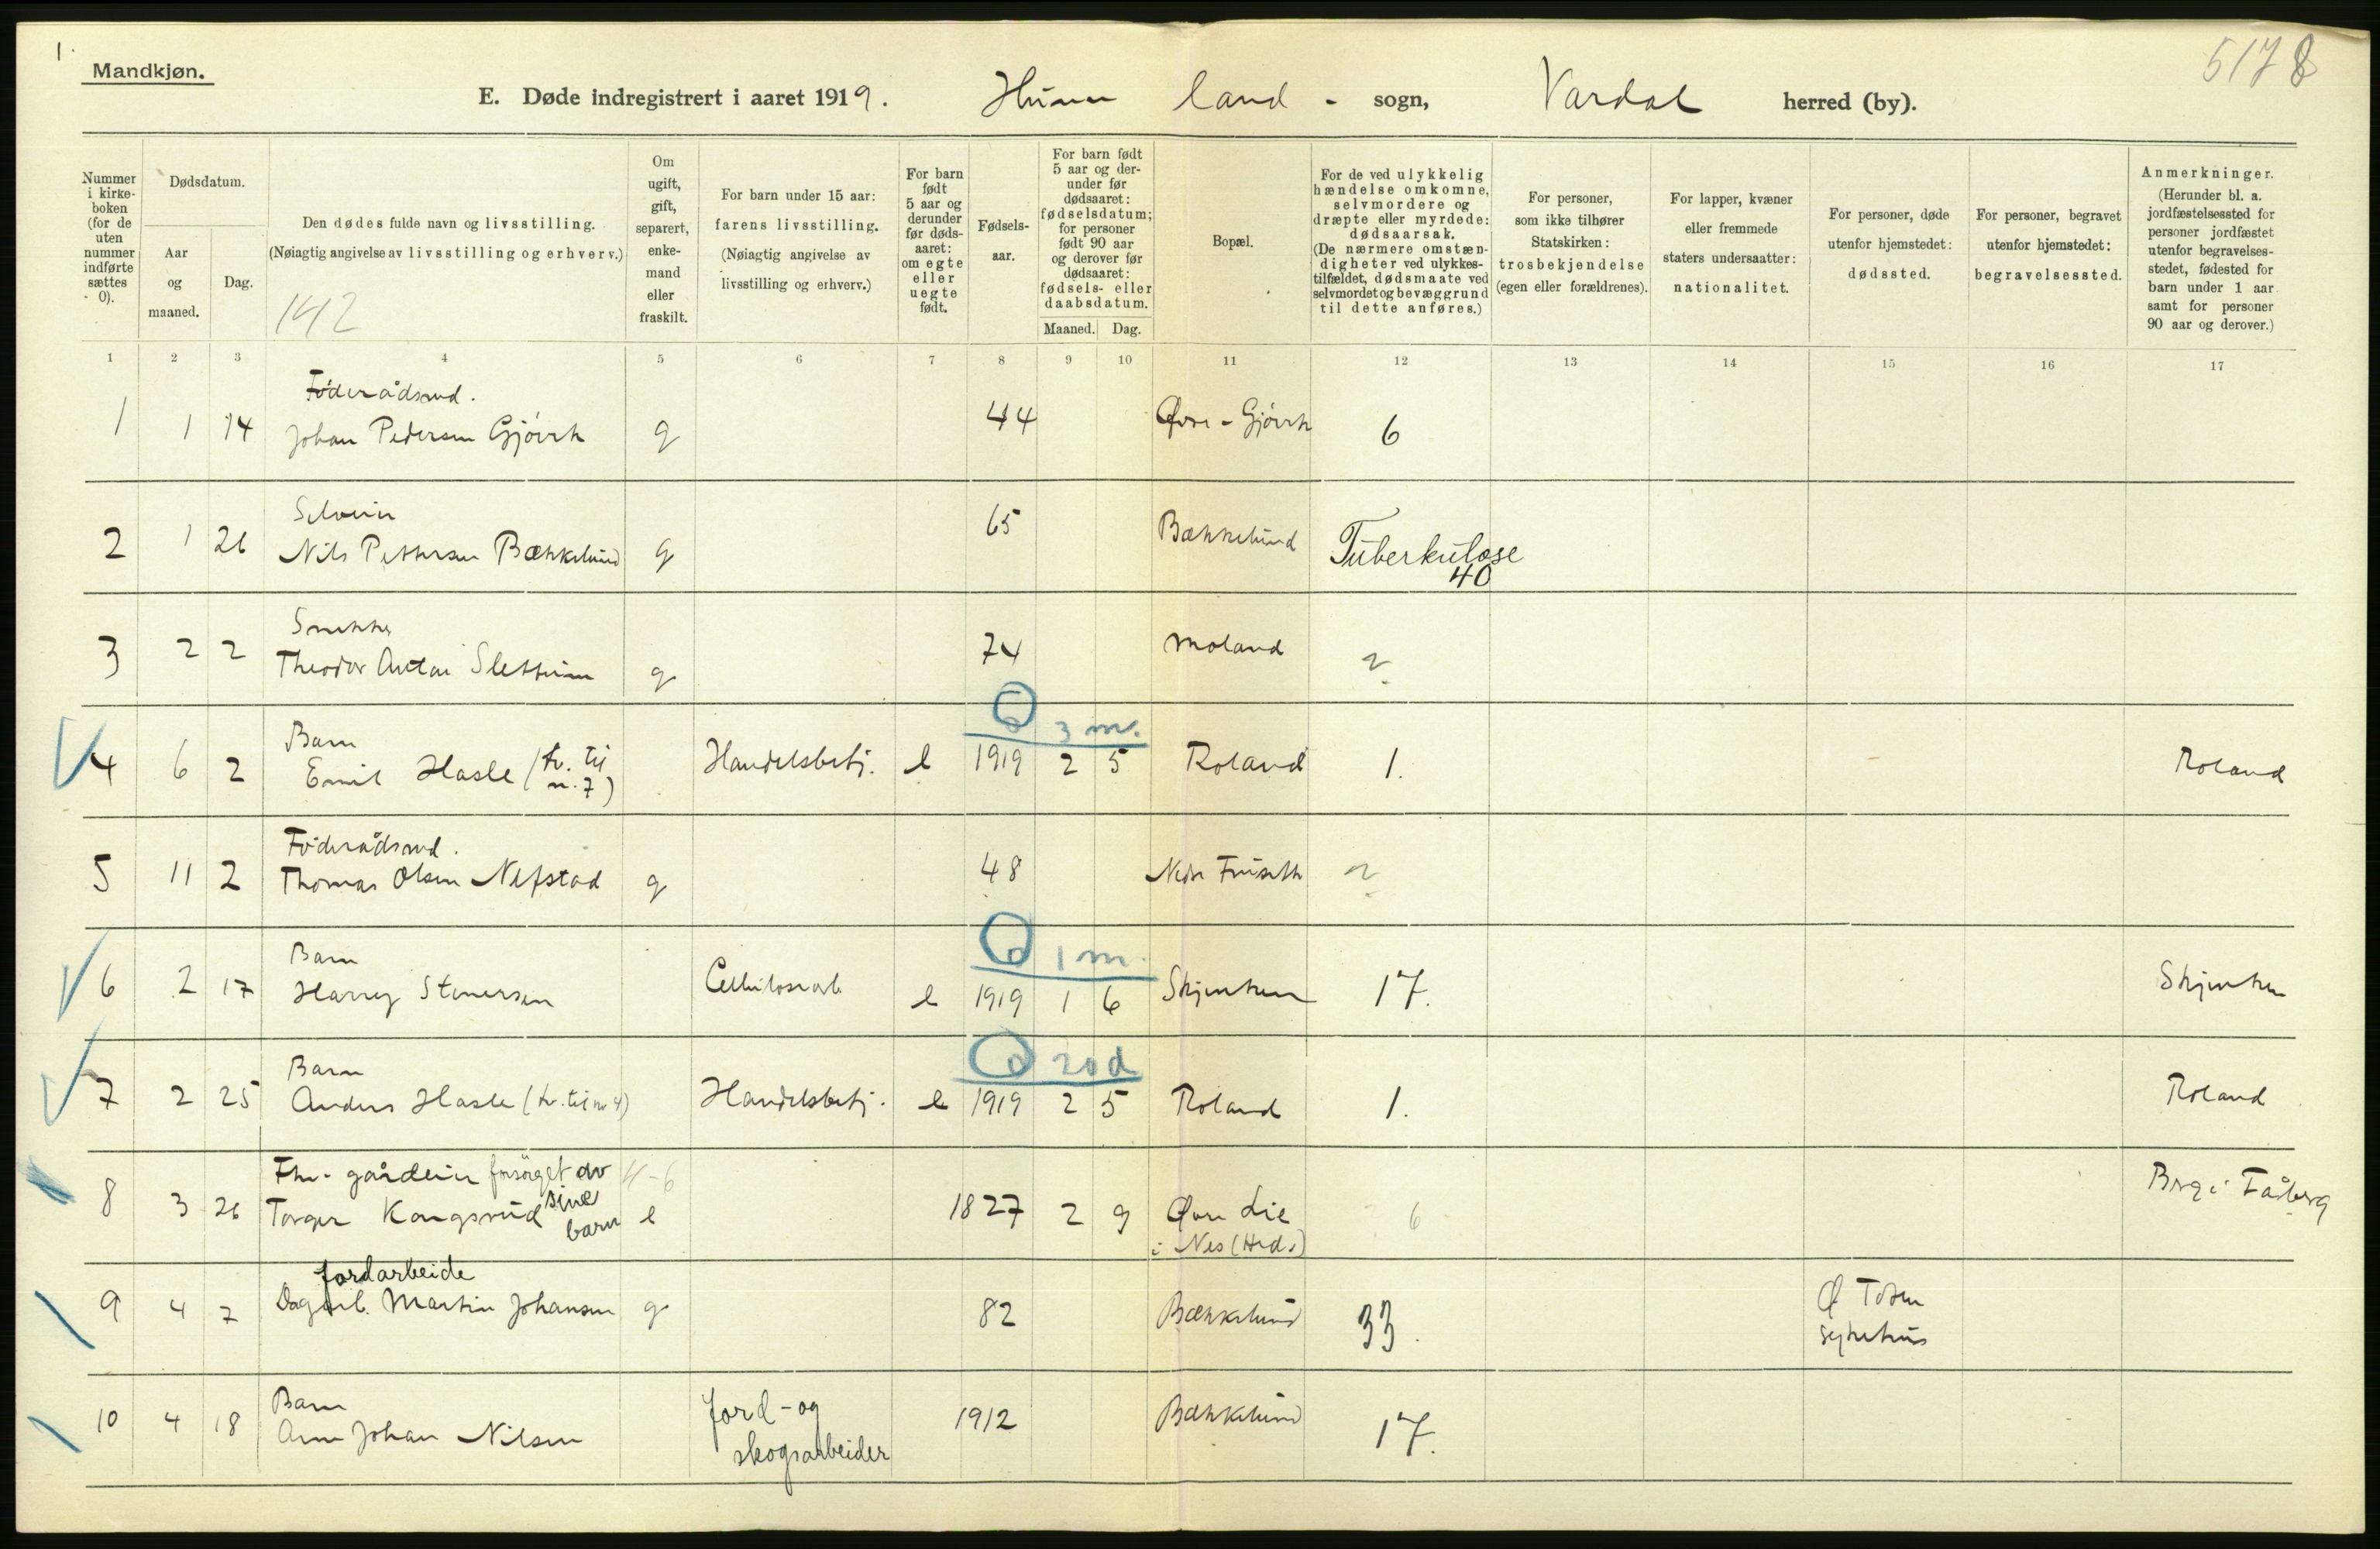 1.
Mandkjøn.
5178
E. Døde indregistrert i aaret 1919. Hunn land - sogn, Vardal herred (by).
Nummer i kirke-boken (for de uten nummer indførte sættes - 0).
Dødsdatum.
Aar og maaned.
Dag.
Den dødes fulde navn og livsstilling.
(Nøiagtig angivelse av livsstilling og erhverv.)
142
Om ugift, gift, separert, enke-mand eller fraskilt.
For barn under 15 aar: farens livsstilling.
(Nøiagtig angivelse av livsstilling og erhverv.)
For barn født 5 aar og derunder før døds-aaret: om egte eller uegte født.
Fødsels-aar.
For barn født 5 aar og der-under før dødsaaret: fødselsdatum; for personer født 90 aar og derover før dødsaaret: fødsels- eller daabsdatum.
Maaned. Dag.
Bopæl.
For de ved ulykkelig hændelse omkomne, selvmordere og dræpte eller myrdede: dødsaarsak.
(De nærmere omstæn-digheter ved ulykkes-tilfældet, dødsmaate ved selvmordet og bevæggrund til dette anføres.)
For personer, som ikke tilhører Statskirken: trosbekjendelse (egen eller forældrenes).
For lapper, kvæner eller fremmede staters undersaatter: nationalitet.
For personer, døde utenfor hjemstedet: dødssted.
For personer, begravet utenfor hjemstedet: begravelsessted.
Anmerkninger.
(Herunder bl. a. jordfæstelsessted for personer jordfæstet utenfor begravelses-stedet, fødested for barn under 1 aar samt for personer 90 aar og derover.)
1 2 3 4 5 6 7 8 9 10 11 12 13 14 15 16 17
Föderådsmd.
1 1 14 Johan Pedersen Gjövik g 44 Øvre - Gjövik 6
Selveier
2 1 26 Nils Pettersen Bækkelund g 65 Bækkelund Tuberkulose
40
Snekker
3 2 2 Theodor Anton g 74 Moland ?
6 3 m.
Barn
4 6 2 Emil Hasle (tv. til n. 7) Handelsbetj. e 1919 2 5 Roland 1. Roland
Föderådsmd.
5 11 2 Thomas Olsen Nefstad g 48 Nedre ?
6 1 m.
Barn
6 2 17 Harry Stenersen Cellulosearb. e 1919 1 6 17.
6 20 d
Barn
7 2 25 Anders Hasle (tv. til nr 4) Handelsbetj. e 1919 2 5 Roland 1. Roland
Fhv. gårdeier forsörget av sine barn 4-6
8 3 26 Torger Kongsrud e 1827 2 9 Øvre Lie i Nes (Hed.) 6 Brg i Fåberg
Jordarbeide
9 4 7 Dagarb. Martin Johansen g 82 Bækkelund 33. Ø Toten sykehus
Barn
10 4 18 Arne Johan Nilsen Jord- og skogsarbeider 1912 Bækkelund 17.